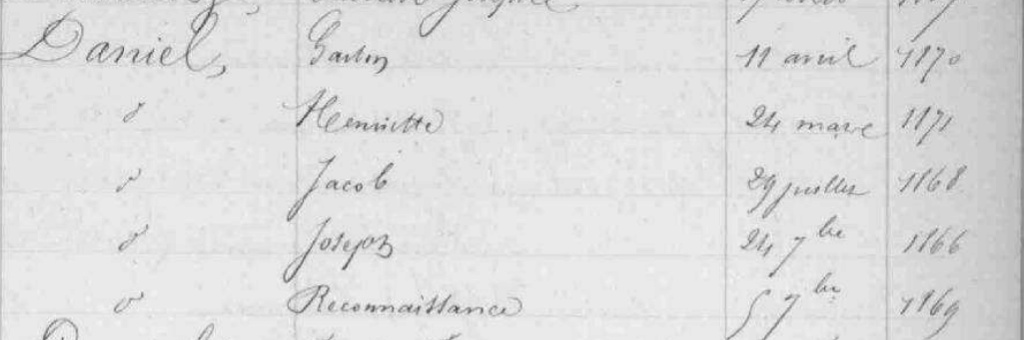 Daniel, Gaston 11 avril 1870
d° Henriette 24 mars 1871
d° Jacob 29 juillet 1868
d° Joseph 24 7bre 1866
d° Reconnaissance 5 7bre 1869